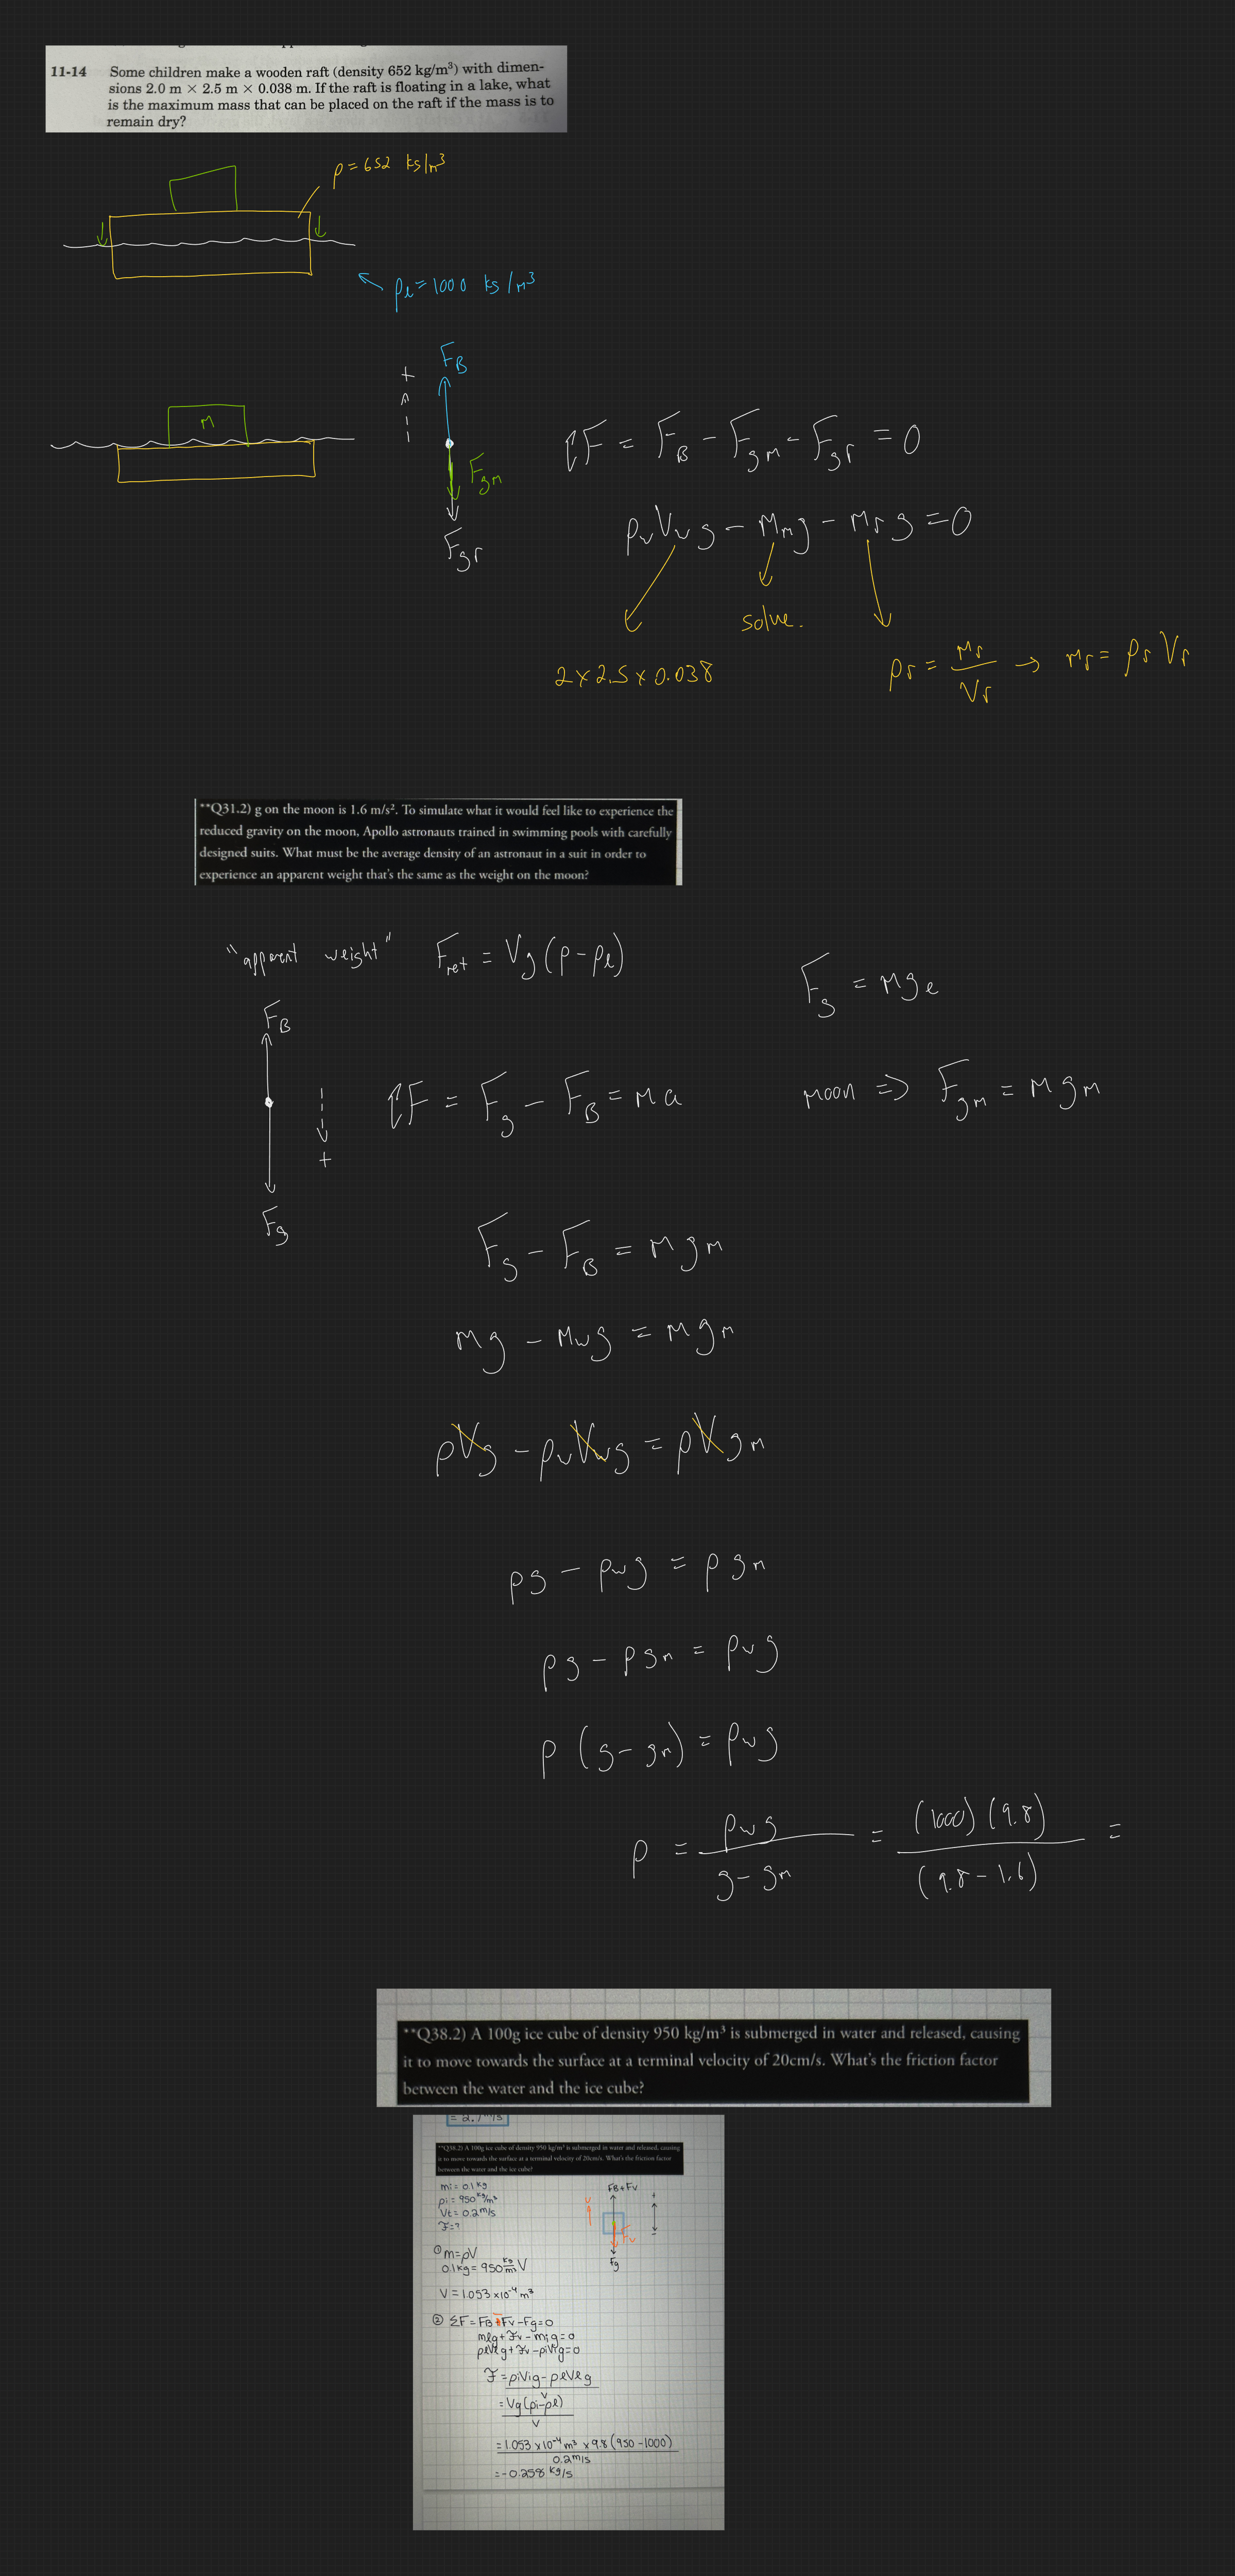 11-14 Some children make a wooden raft (density 652 kg/m³) with dimen-
sions 2.0 m × 2.5 m × 0.038 m. If the raft is floating in a lake, what
is the maximum mass that can be placed on the raft if the mass is to
remain dry?
ρ = 652 kg/m³
ρl = 1000 kg/m³
FB
+
m
Fgm
Fgr
↑F = FB - Fgm - Fgr = 0
ρw Vw g - mm g - mr g = 0
solve.
2 × 2.5 × 0.038
ρr = mr/Vr → mr = ρr Vr
**Q31.2) g on the moon is 1.6 m/s². To simulate what it would feel like to experience the
reduced gravity on the moon, Apollo astronauts trained in swimming pools with carefully
designed suits. What must be the average density of an astronaut in a suit in order to
experience an apparent weight that's the same as the weight on the moon?
"apparent weight" Fnet = Vg(ρ-ρl)
Fg = mge
FB
↑F = Fg - FB = ma
moon ⇒ Fgm = mgm
+
Fg
Fg - FB = mgm
mg - mwg = mgm
ρVg - ρwVwg = ρVgm
ρg - ρwg = ρgm
ρg - ρgm = ρwg
ρ(g-gm) = ρwg
ρ = ρwg/(g-gm) = (1000)(9.8)/(9.8-1.6) =
**Q38.2) A 100g ice cube of density 950 kg/m³ is submerged in water and released, causing
it to move towards the surface at a terminal velocity of 20cm/s. What's the friction factor
between the water and the ice cube?
= 2.7 m/s
**Q38.2) A 100g ice cube of density 950 kg/m³ is submerged in water and released, causing
it to move towards the surface at a terminal velocity of 20cm/s. What's the friction factor
between the water and the ice cube?
mi = 0.1 kg
ρi = 950 kg/m³
Vt = 0.2 m/s
F = ?
FB + Fv
v
+
-
Fv
Fg
① m = ρV
0.1 kg = 950 kg/m³ V
V = 1.053 × 10⁻⁴ m³
② ΣF = FB + Fv - Fg = 0
mlg + Fv - mig = 0
ρlVlg + Fv - ρiVig = 0
F = ρiVig - ρlVlg
v
= Vg(ρi-ρl)
v
= 1.053 × 10⁻⁴ m³ × 9.8 (950 - 1000)
0.2 m/s
= -0.258 kg/s